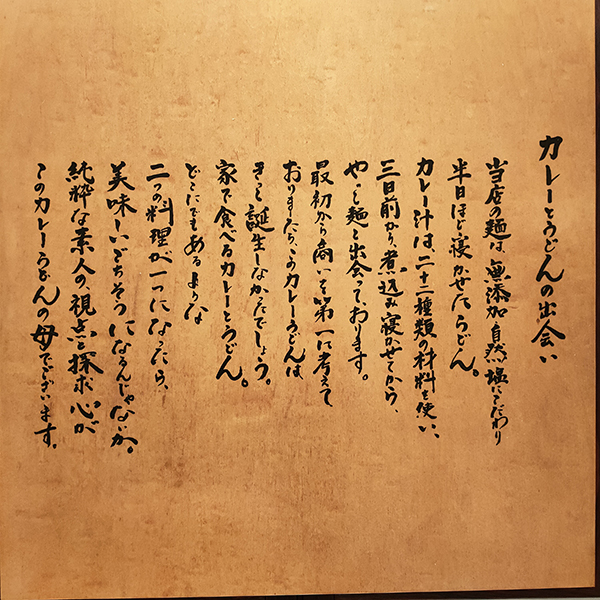 カレーとうどんの出会い
当店の麺は、無添加、自然塩にこだわり
半日ほど寝かせたうどん。
カレー汁は、二十二種類の材料を使い、
三日前から、煮込み寝かせてから、
やっと麺と出会っております。
最初から商いを第一に考えて
おりましたら、このカレーうどんは
きっと誕生しなかったでしょう。
家で食べるカレーとうどん。
どこにでもあるような
二つの料理が一つになったら、
美味しいごちそうになるんじゃないか。
純粋な素人の、視点と探求心が
このカレーうどんの母でございます。